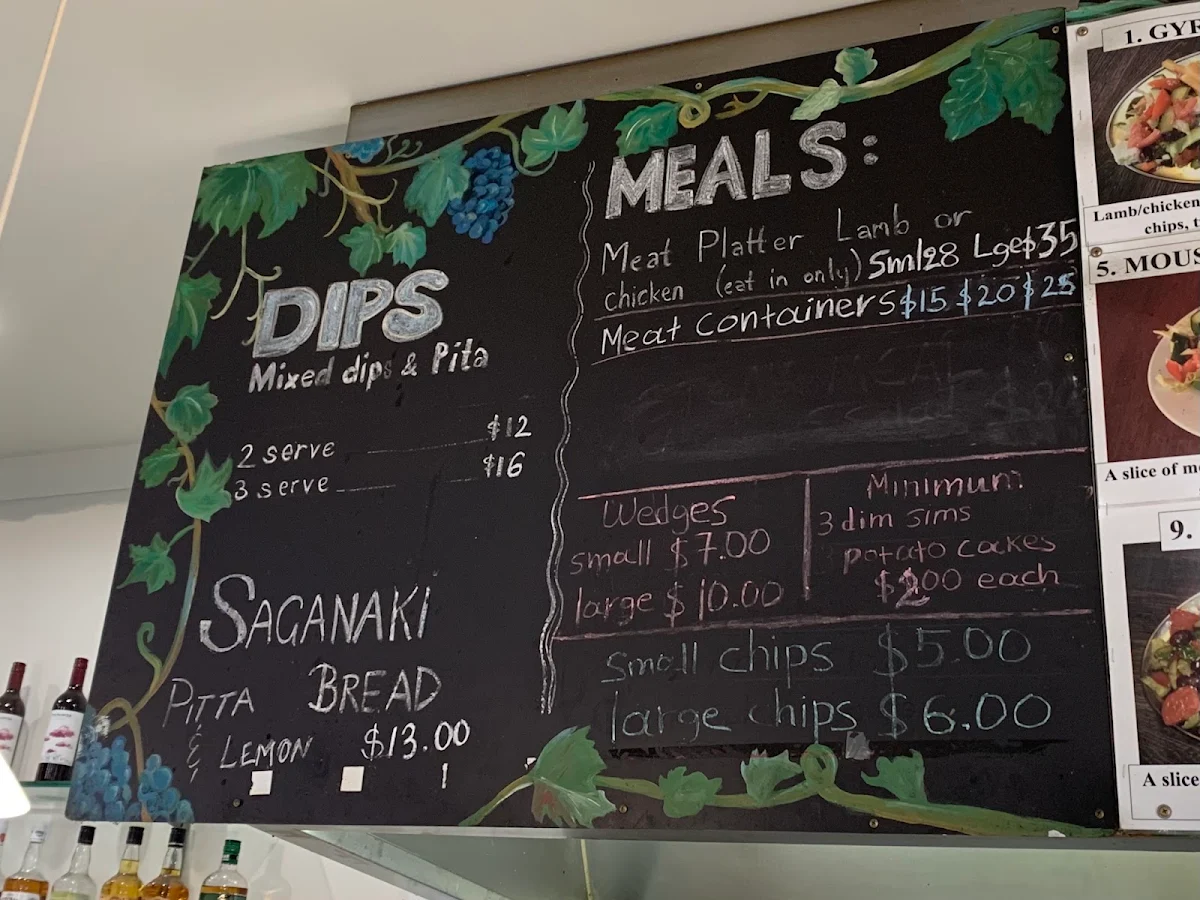 DIPS
Mixed dips & Pita
2 serve $12
3 serve $16
SAGANAKI
PITTA BREAD
& LEMON $13.00
MEALS:
Meat Platter Lamb or
chicken (eat in only) Sml28 Lge$35
Meat containers $15 $20 $25
Wedges
small $7.00
large $10.00
Minimum
3 dim sims
potato cackes
$2.00 each
Small chips $5.00
large chips $6.00
1. GYR
Lamb/chicken
chips, t
5. MOUS
A slice of mo
9.
A slice